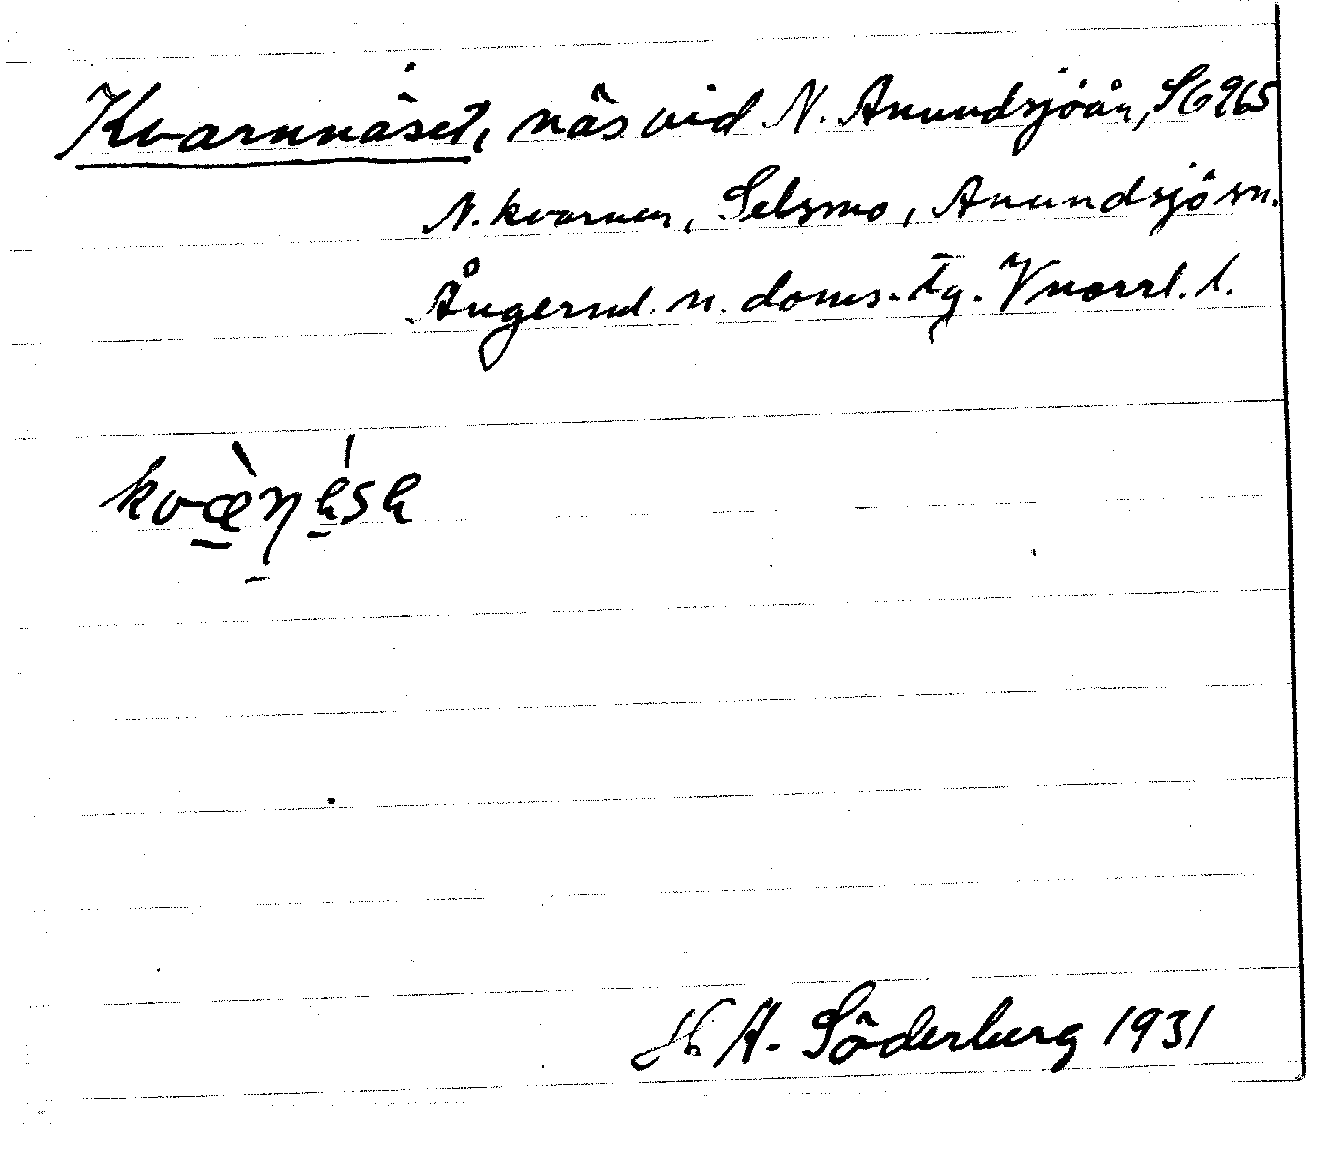 Kvarnnäset, näs vid N. Anundsjöån, SG 965
N. kvarnen, Selsmo, Anundsjö sn.
Ångerml. n. doms. tg. Vnorrl. l.
H A. Söderberg 1931